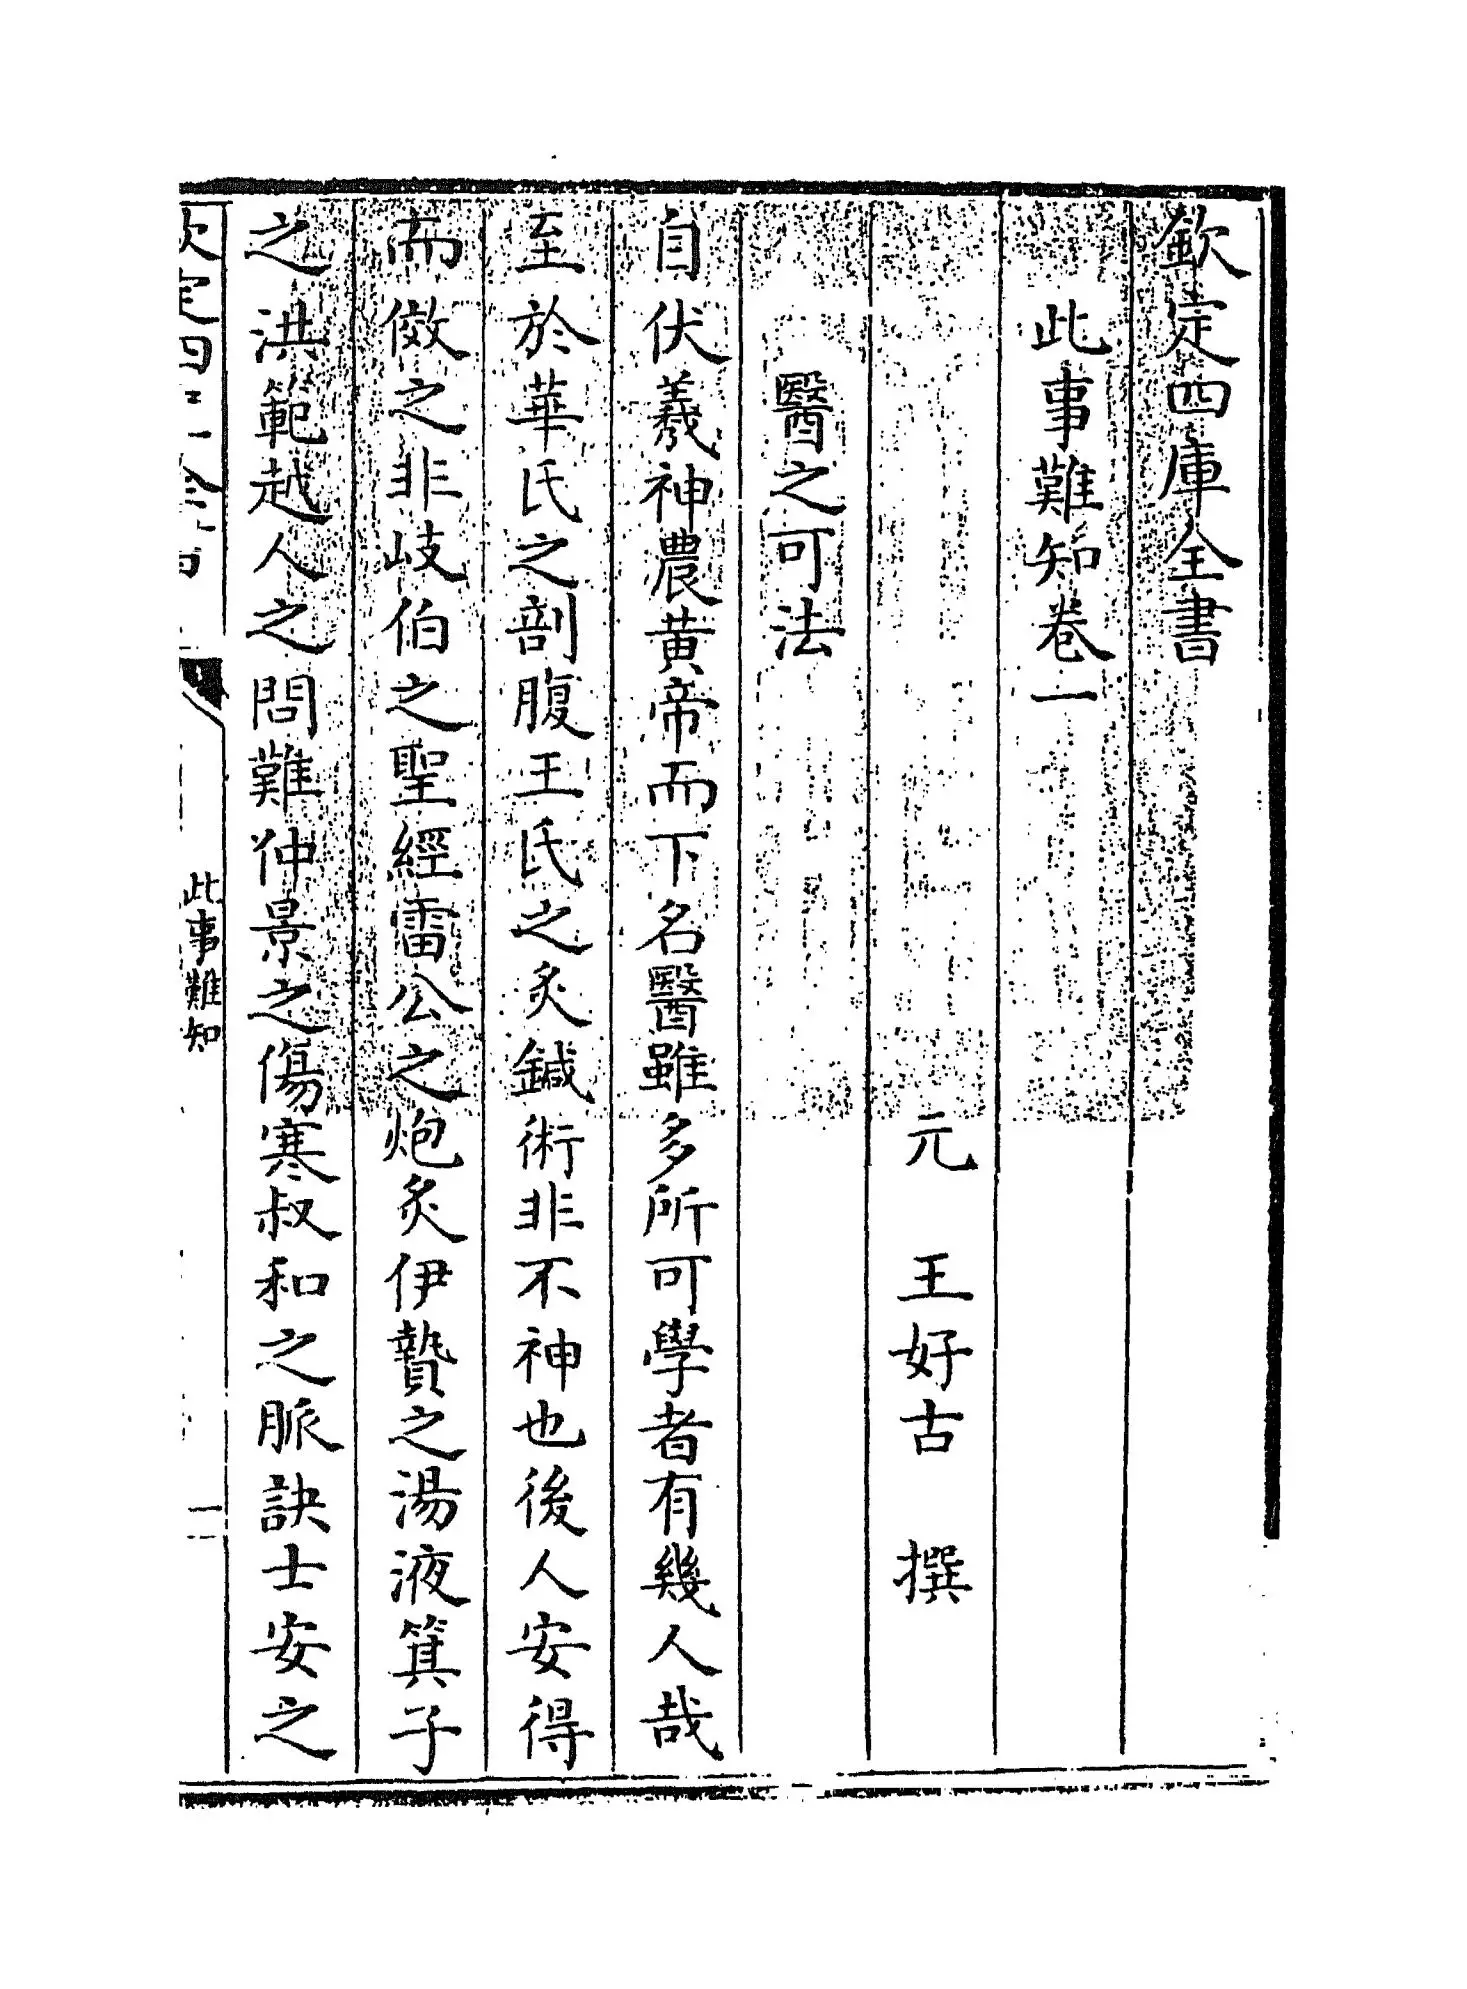 欽定四庫全書
此事難知卷一
元 王好古 撰
醫之可法
自伏羲神農黄帝而下名醫雖多所可學者有幾人哉
至於華氏之剖腹王氏之炙鍼術非不神也後人安得
而倣之非岐伯之聖經雷公之炮炙伊贄之湯液箕子
之洪範越人之問難仲景之傷寒叔和之脈訣士安之
此事難知
一